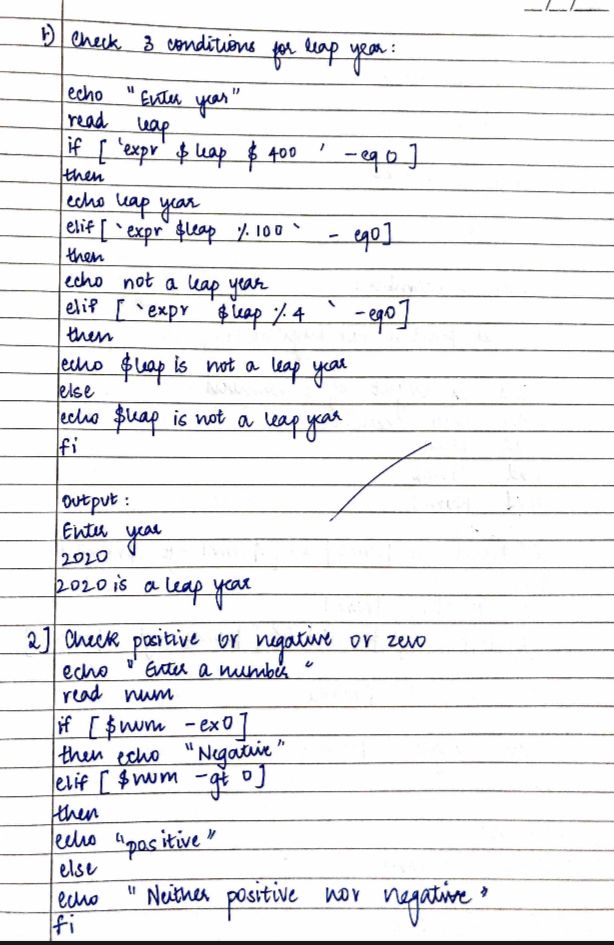 1) Check 3 conditions for leap year :
echo "Enter year"
read leap
if [ 'expr $ leap $ 400 ' -eq 0 ]
then
echo leap year
elif [ `expr $leap % 100 ` - eq0]
then
echo not a leap year
elif [ `expr $leap % 4 ` -eq0]
then
echo $leap is not a leap year
else
echo $leap is not a leap year
fi
Output :
Enter year
2020
2020 is a leap year
2] Check positive or negative or zero
echo " Enter a number "
read num
if [ $num -ex0 ]
then echo "Negative"
elif [ $num -gt 0 ]
then
echo "positive"
else
echo " Neither positive nor negative "
fi